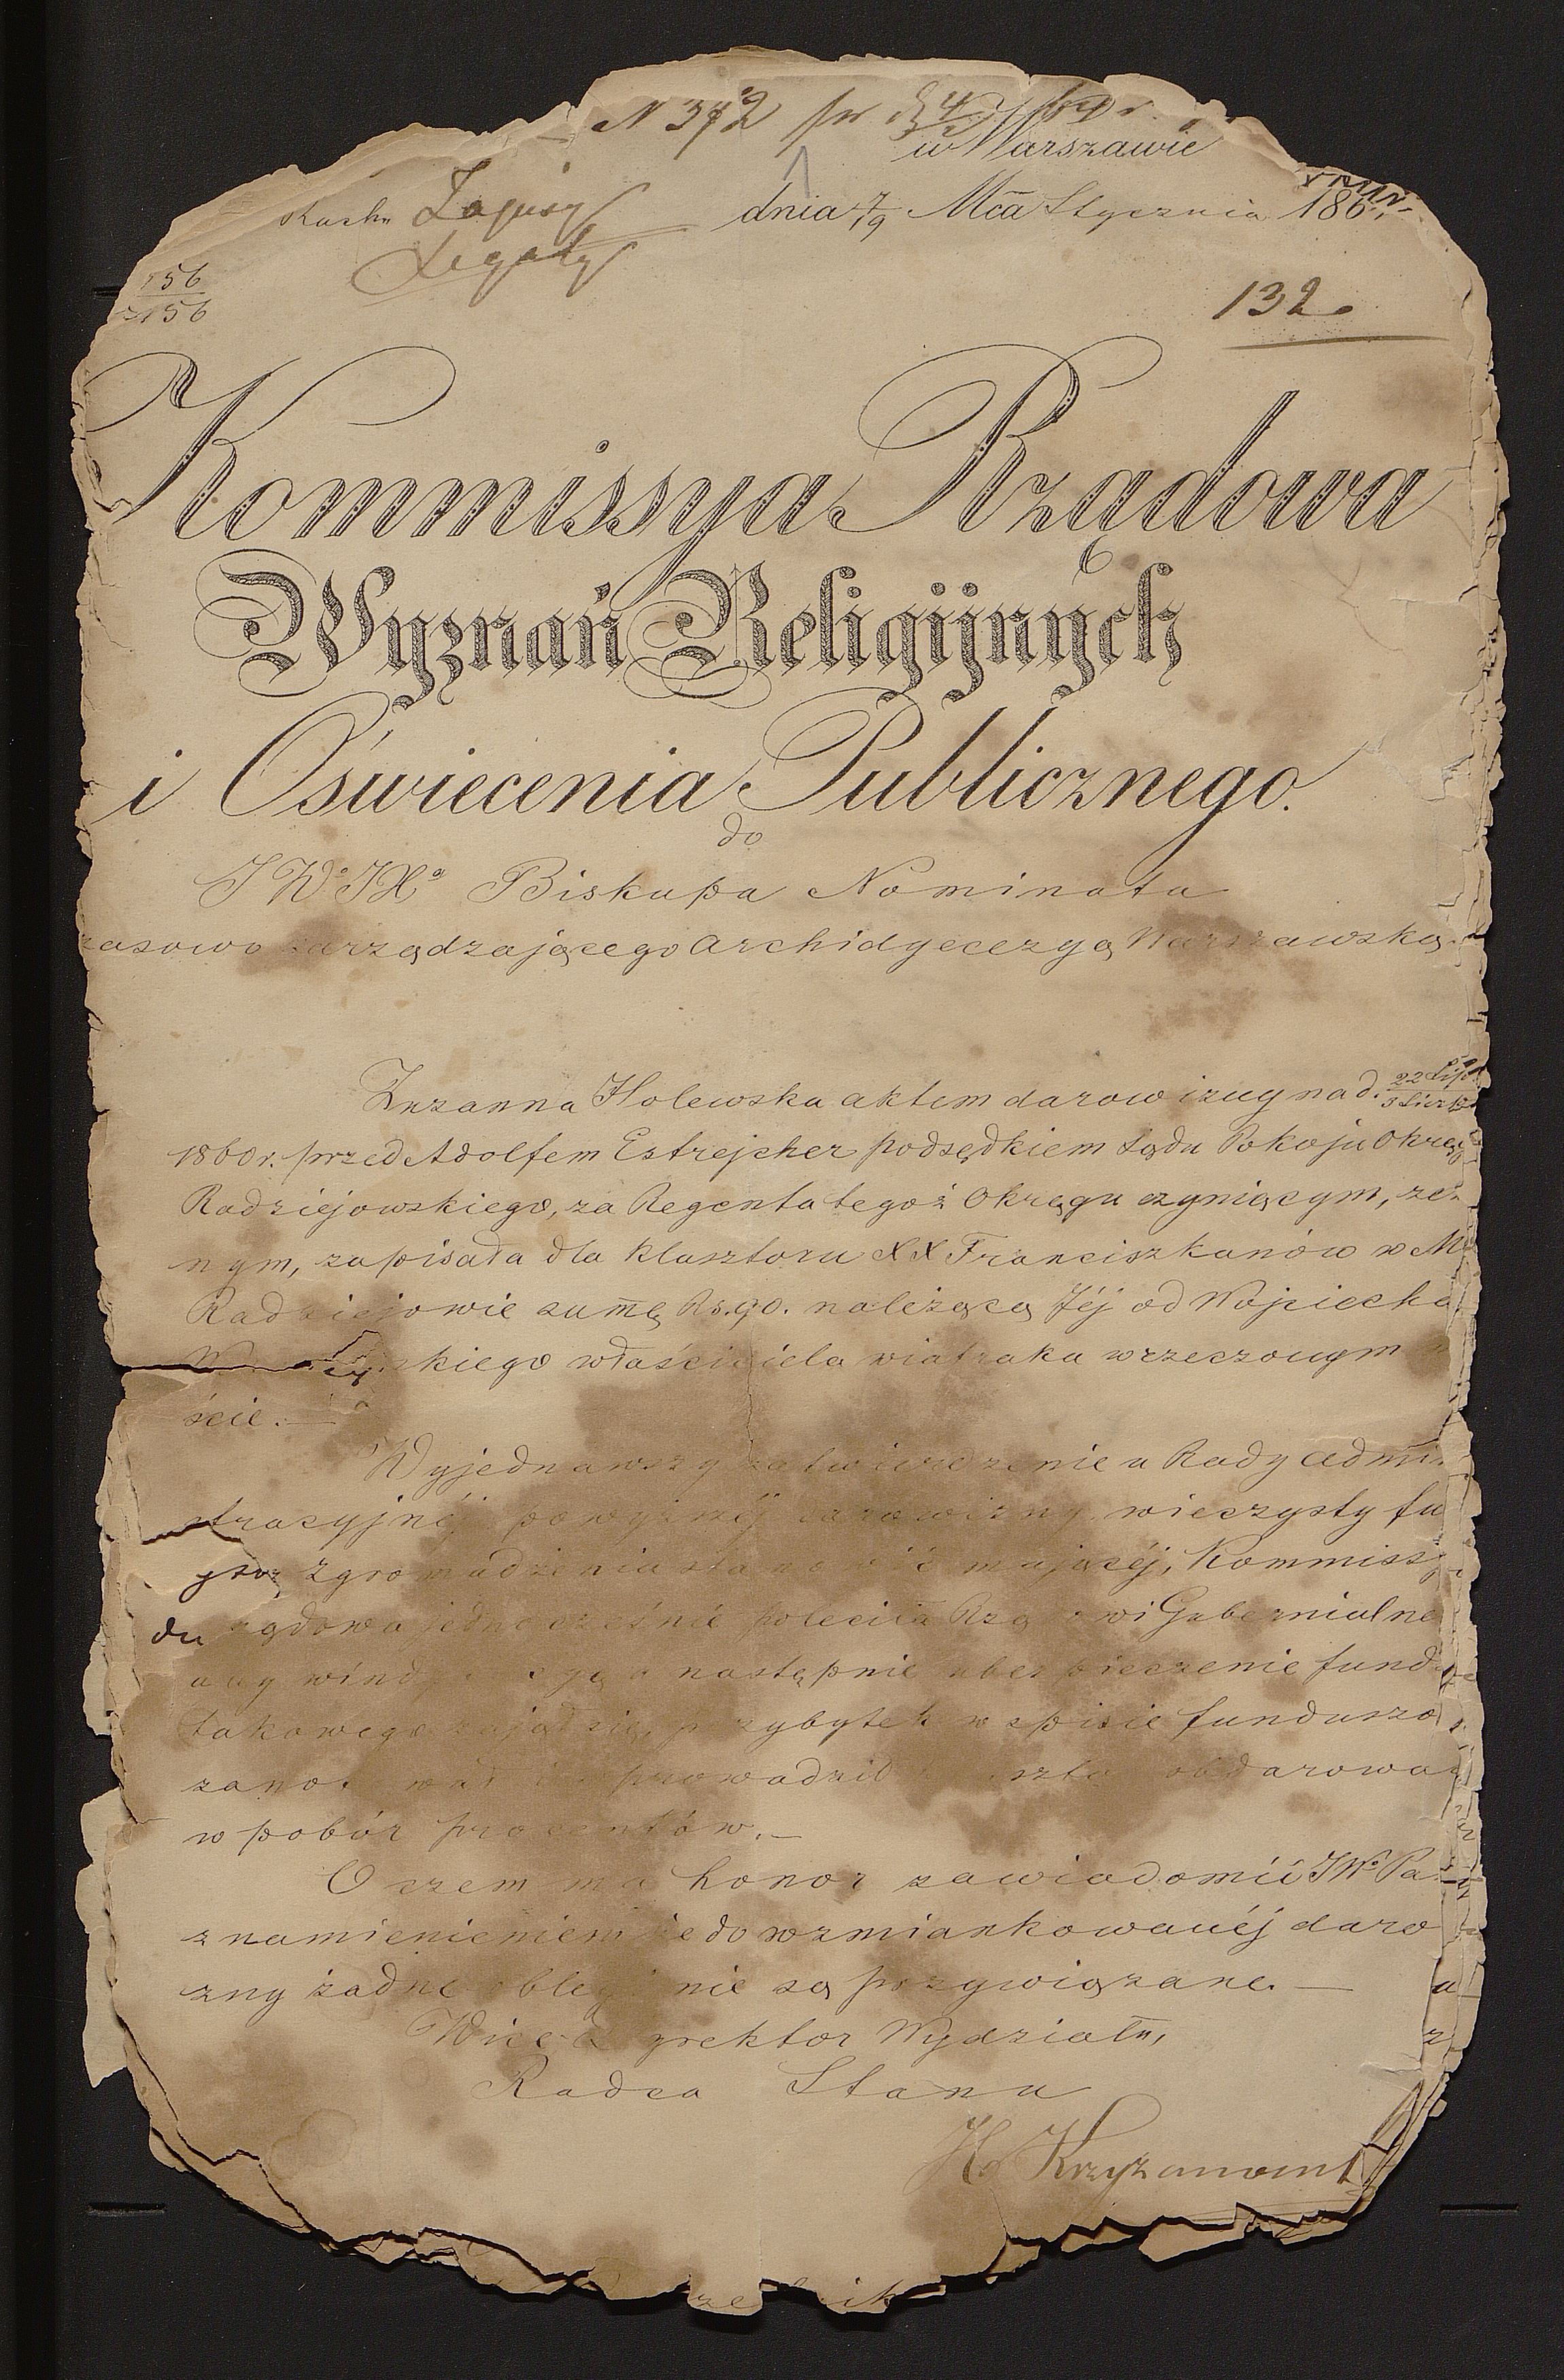 N 372 pr d 4/2 61 r.
w Warszawie
Zapisy dnia 7/19 Mca Stycznia 186
Legaty
156
2156
132.
Kommissya Rządowa
Wyznań Religijnych
i Oświecenia Publicznego.
do
JWo JXa Biskupa Nominata
zasowo zarządzającego Archidyecezyą Warszawską.
Zuzanna Holewska aktem darowizny na d. 22 Lip
1860 r. przed Adolfem Estrejcher podsędkiem Sądu Pokoju Okręg
Radziejowskiego, za Regenta tegoż Okręgu czyniącym, ze-
nym, zapisała dla klasztoru XX Franciszkanów w M
Radziejowie sumę Rs. 90. należącą Jéj od Wojciecha
skiego właściciela wiatraka w rzeczonym
ście. —
Wyjednawszy zatwierdzenie u Rady Admi-
stracyjnéj powyższéj darowizny, wieczysty fu
zgromadzenia stanowić mającéj, Kommissy
ządowa jednocześnie poleciła Rzą wi Gubernialne
aby a następnie ubezpieczenie fund
takowego zajął się, przybytek w spisie funduszo
zano wał i wprowadził obdarowa
w pobór procentów. —
O czem ma honor zawiadomić JWo Pa
z namienieniem że do wzmiankowanéj daro
zny żadne oblegi nie są przywiązane. —
Wice Dyrektor Wydziału,
Radca Stanu
H Krzyżanowsk